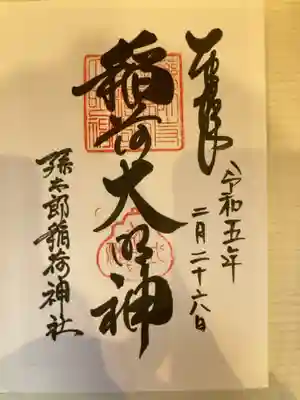 令和五年
二月二十六日
稲荷大明神
孫太郎稲荷神社